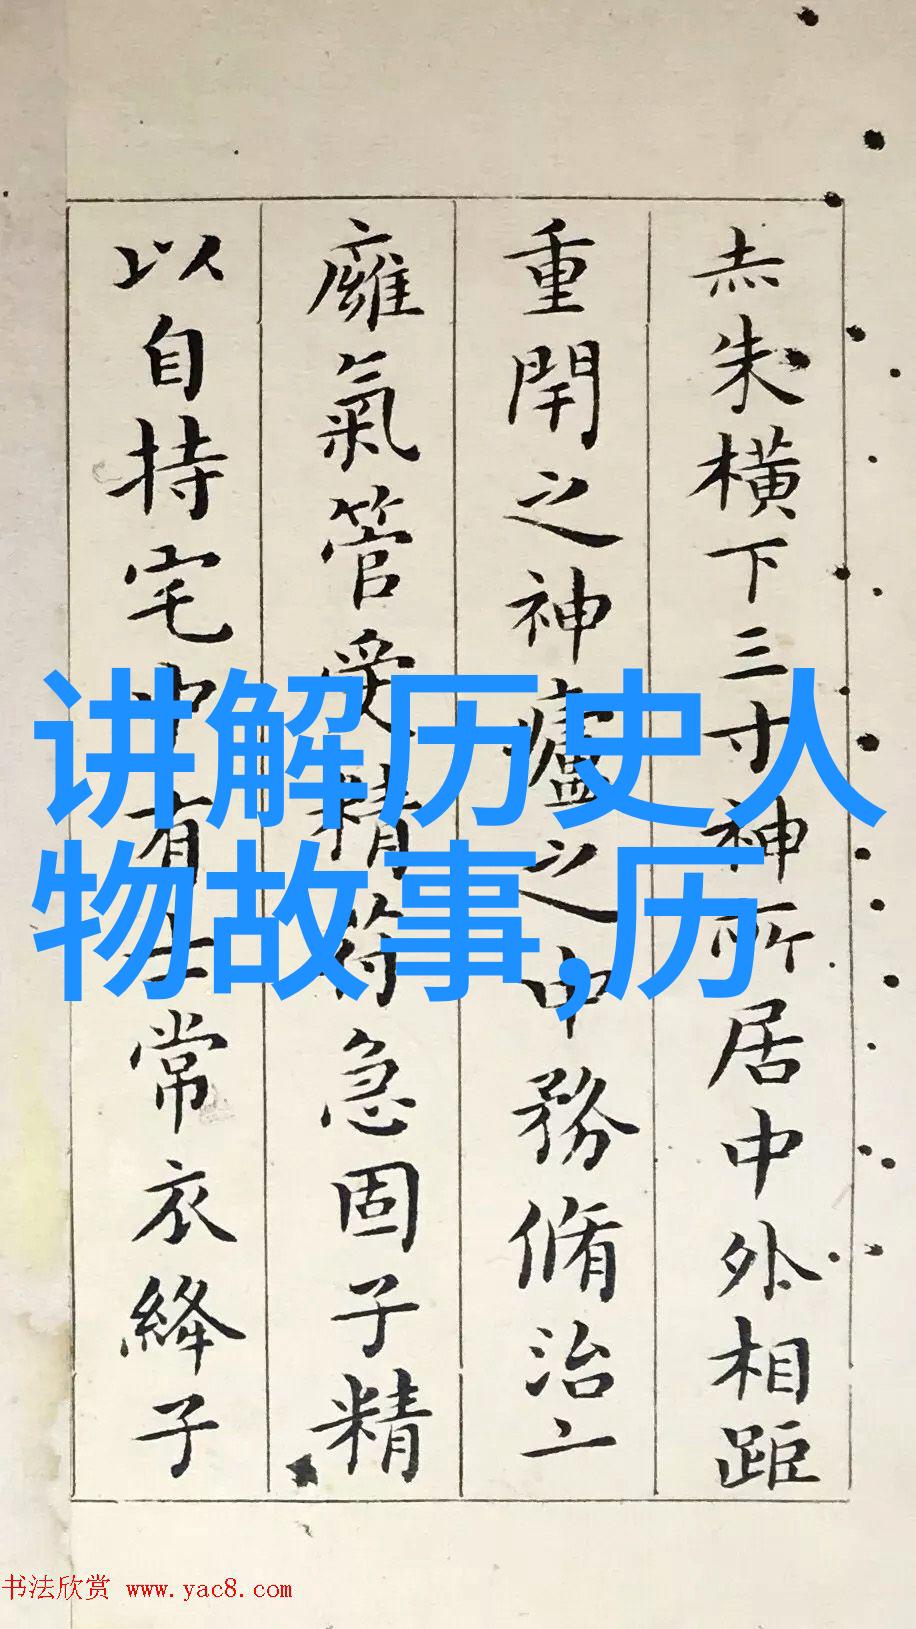 讲解历史人
物故事,历
赤朱横下三寸神所居中外相距
重閇之神廬之中務脩治二
癕氣管受精符急固子精
以自持宅中有士常衣絳子
书法欣赏 www.yac8.com